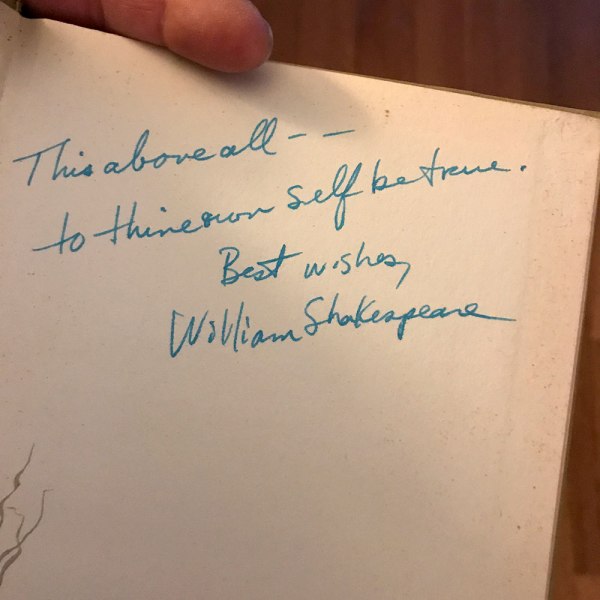 This above all--
to thine own self be true.
Best wishes,
William Shakespeare